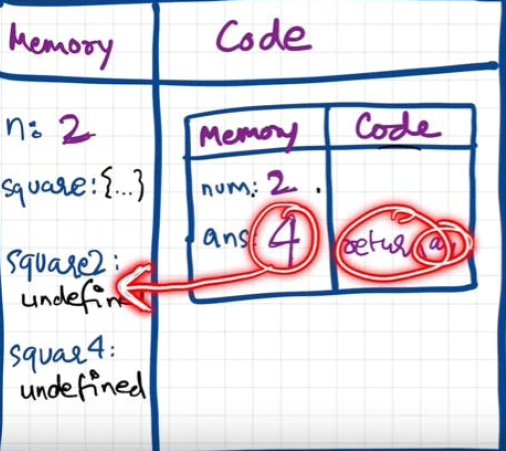 Memory
Code
n: 2
square:{...}
square2:
undefin
squar4:
undefined
Memory
Code
num: 2
ans: 4
return a